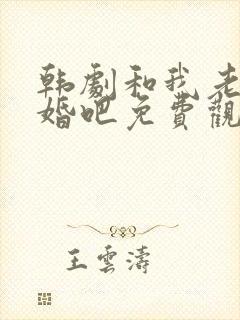 韩劇和我老
婚吧免費觀
王雲濤